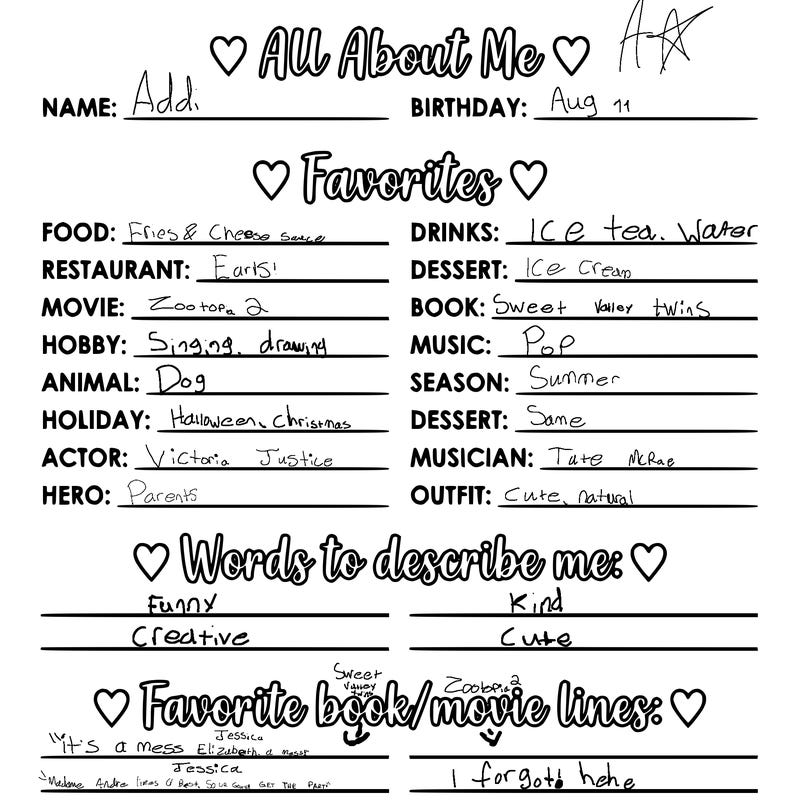 All About Me
A
NAME: Addi BIRTHDAY: Aug 11
Favorites
FOOD: Fries & Cheese sauce DRINKS: Ice tea. Water
RESTAURANT: Earls! DESSERT: Ice Cream
MOVIE: Zootopia 2 BOOK: Sweet Valley twins
HOBBY: Singing, drawing MUSIC: Pop
ANIMAL: Dog SEASON: Summer
HOLIDAY: Halloween, Christmas DESSERT: Same
ACTOR: Victoria Justice MUSICIAN: Tate McRae
HERO: Parents OUTFIT: Cute, natural
Words to describe me:
Funny Kind
Creative Cute
Sweet Valley twins Zootopia 2
Favorite book/movie lines:
Jessica
"It's a mess Elizabeth, a mess"
Jessica
"Madame Andre GET THE PART" I forgot! hehe